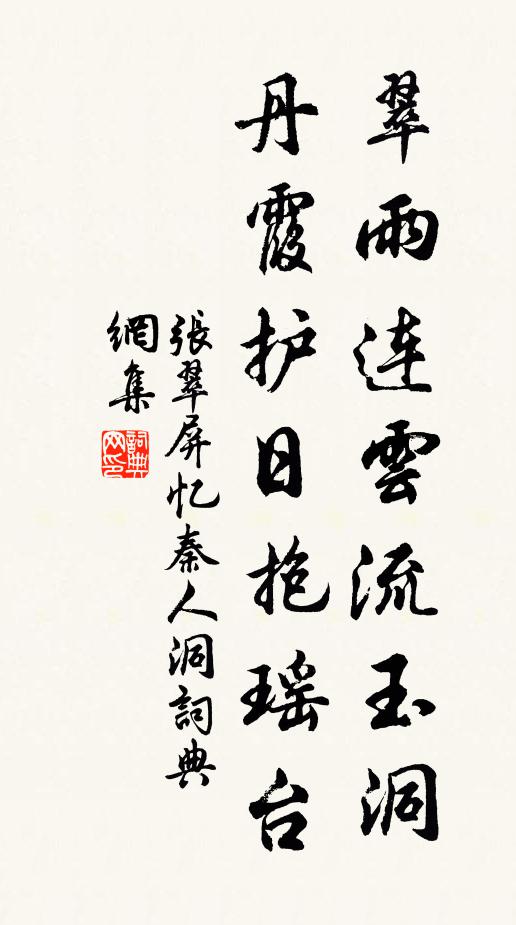 翠雨连雲流玉洞
丹霞护日抱瑶台
張翠屏忆秦人洞詞典
網集
詞典网印